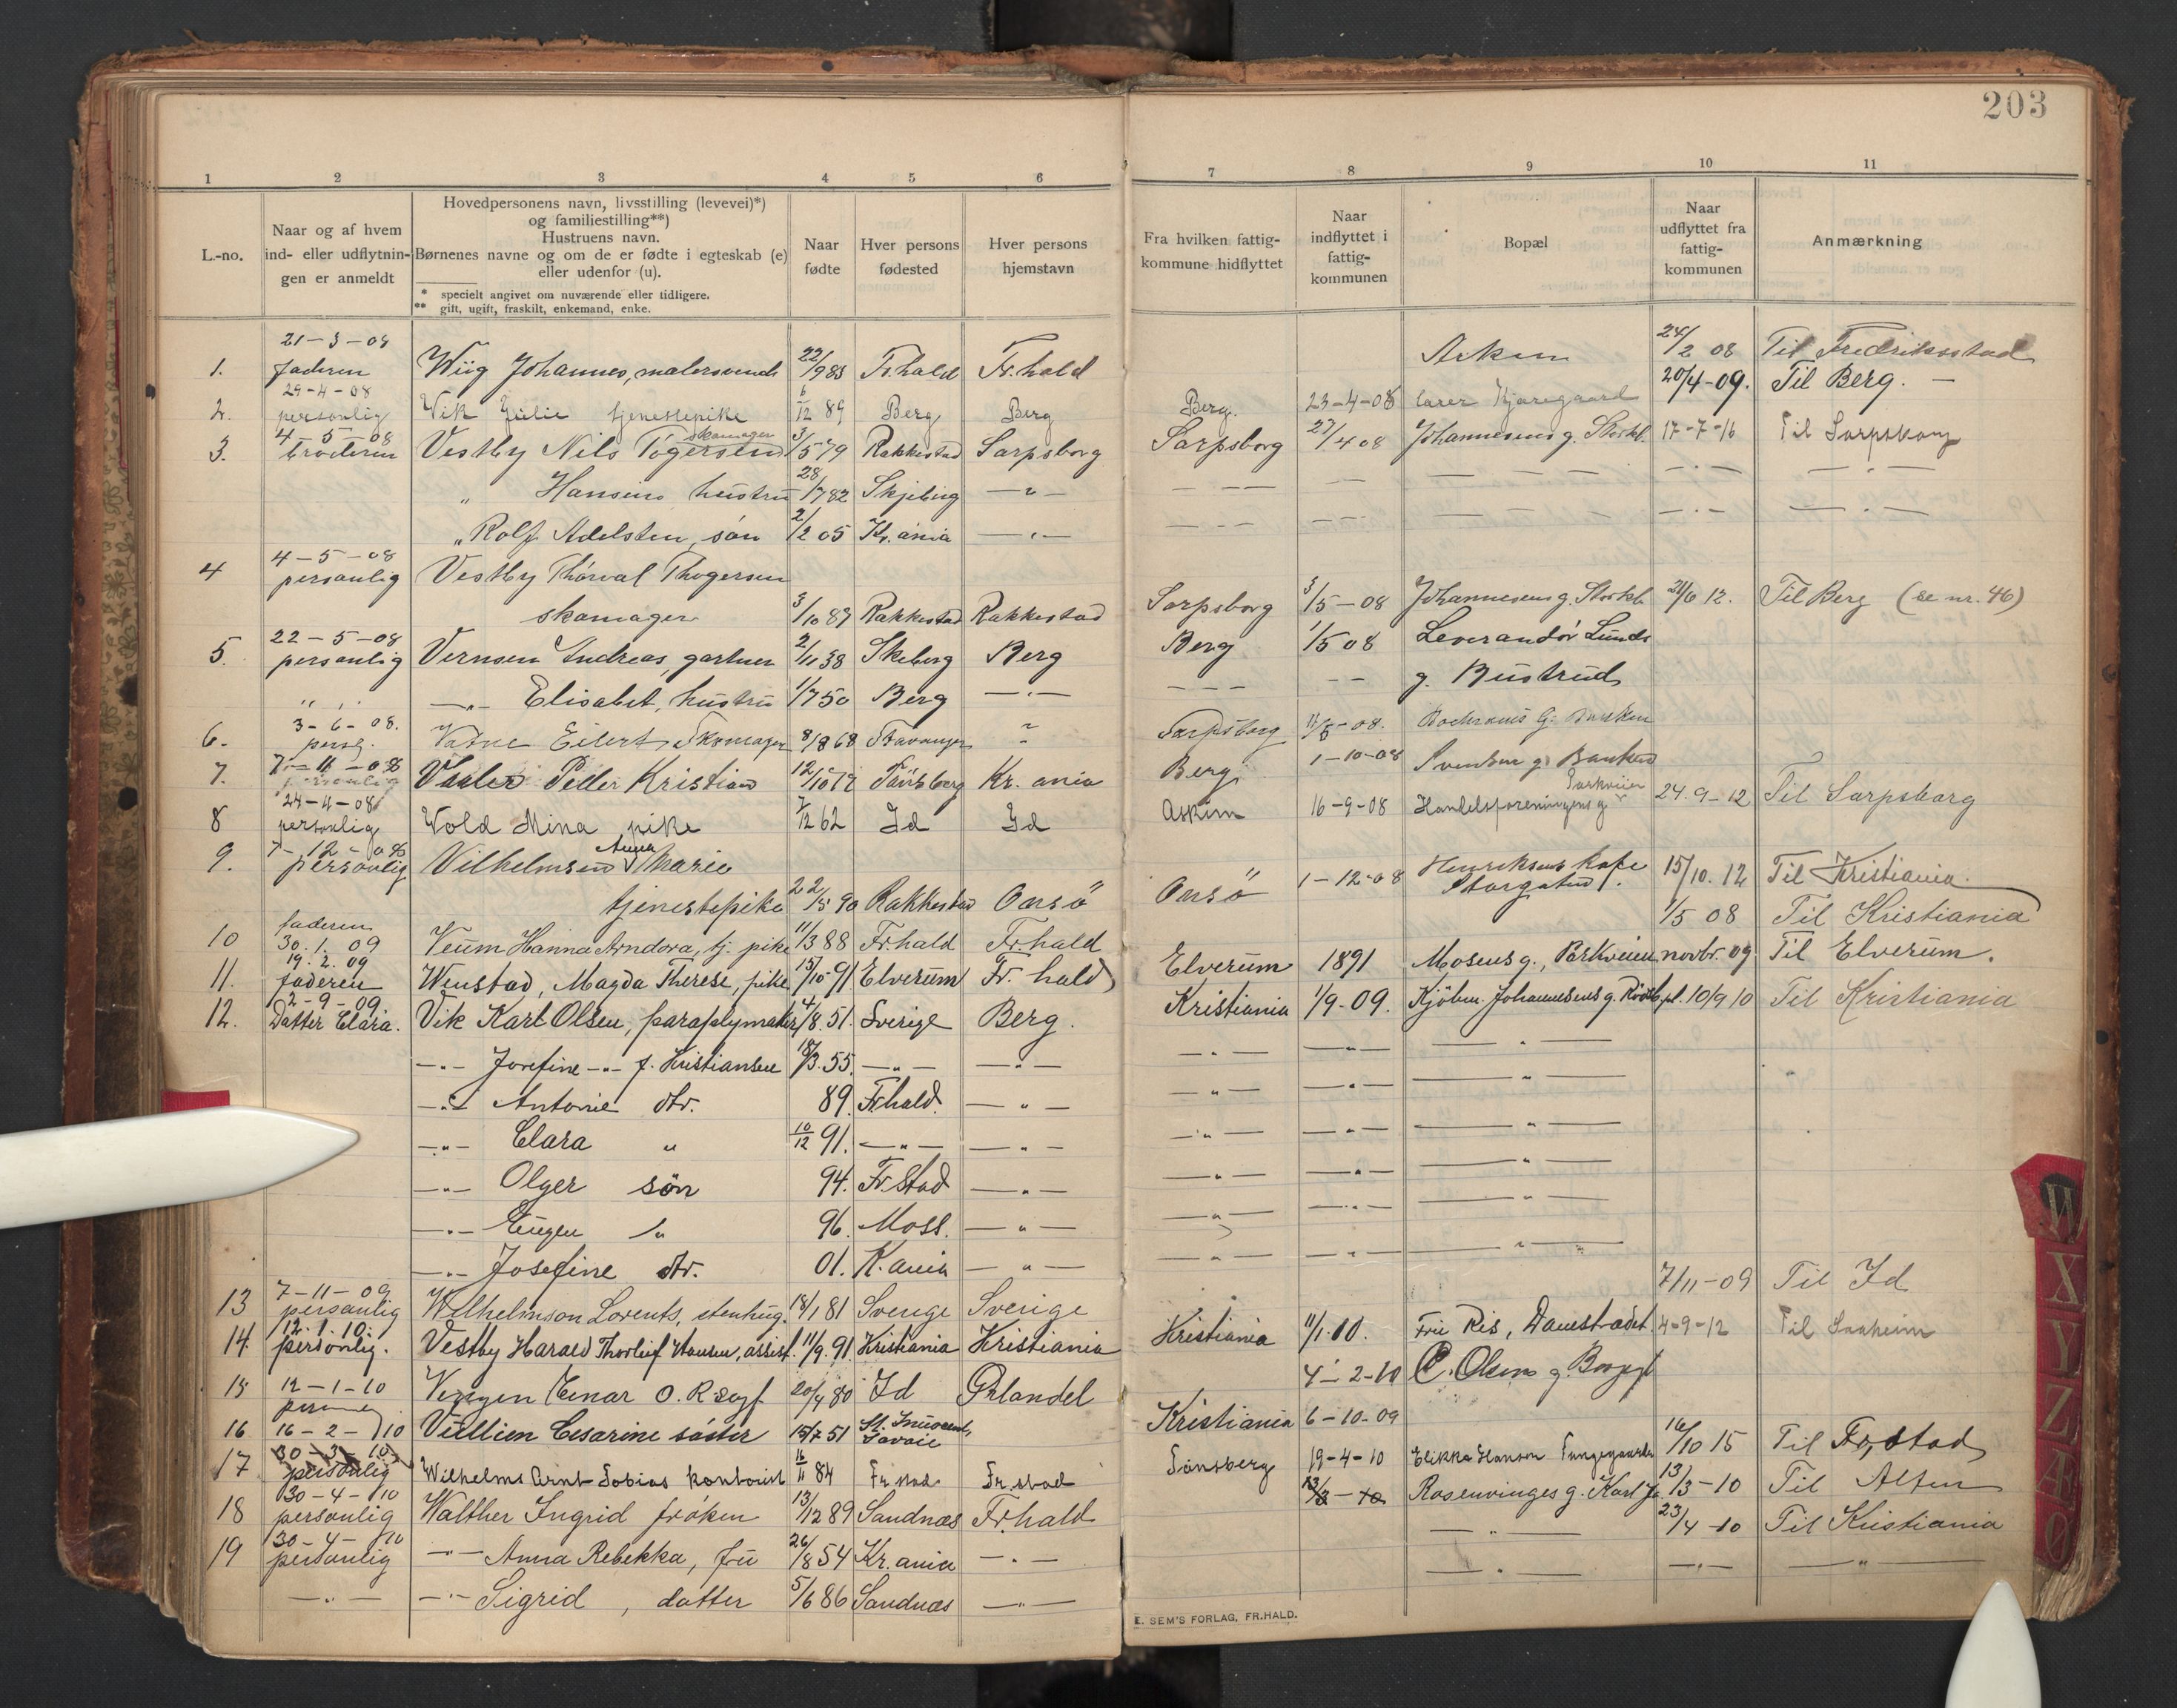 203
1 2 3 4 5 6 7 8 9 10 11
L.-no.
Naar og af hvem
ind- eller udflytnin-
gen er anmeldt
Hovedpersonens navn, livsstilling (levevei)*)
og familiestilling**)
Hustruens navn.
Børnenes navne og om de er fødte i egteskab (e)
eller udenfor (u).
* specielt angivet om nuværende eller tidligere.
** gift, ugift, fraskilt, enkemand, enke.
Naar
fødte
Hver persons
fødested
Hver persons
hjemstavn
Fra hvilken fattig-
kommune hidflyttet
Naar
indflyttet i
fattig-
kommunen
Bopæl
Naar
udflyttet fra
fattig-
kommunen
Anmærkning
21-3-08
1. faderen Wiig Johannes, malersvend 22/9 83 Fr.hald Fr.hald
29-4-08
2. personlig Vik Julie tjenestepike 6/12 89 Berg Berg
4-5-08 skomager
3. broderen Vestby Nils Tøgersen 3/5 79 Rakkestad Sarpsborg
" Hansine hustru 28/7 82 Skjeberg -"-
" Rolf Adelsten, søn 2/2 05 Kr.ania -"-
4-5-08
4 personlig Vestby Thorval Thogersen
skomager 3/10 87 Rakkestad Rakkestad
22-5-08
5. personlig Vernsen Andreas, gartner 2/11 38 Skeberg Berg
" " -"- Elisabet, hustru 1/7 50 Berg -"-
3-6-08.
6. persg. Vatne Eilert Skomager 8/8 68 Stavanger "
7-11-08
7. personlig Vaaler Peder Kristian 12/10 72 Tønsberg Kr.ania
24-11-08
8 personlig Wold Mina pike 7/12 62 Id Id
7-12-08 Anna
9. personlig Vilhelmsen Marie
tjenestepike 22/5 90 Rakkestad Onsö
faderen
10 30.1.09 Veum Hanna Arndora, tj. pike 11/3 88 Frhald Fr.hald
19.2.09
11. faderen Wenstad, Magda Therese, pike 15/10 91 Elverum Fr.hald
2-9-09.
12. Datter Clara. Vik Karl Olsen, paraplymaker 4/8.51. Sverige Berg.
-"- Josefine -"- f. Kristiansen 18/3.55. -"- -"-
-"- Antonie dtr. 89. Frhald. -"-
-"- Clara " 10/12 91. -"- -"-
-"- Olger søn 94. Fr.stad -"-
-"- Eugen " 96. Moss. -"-
-"- Josefine dtr. 01. K.ania -"-
7-11-09
13 personlig Wilhelmson Lorents, stenhug. 18/1 81 Sverige Sverige
12.1.10.
14. personlig. Vestby Harald Thorleif Hansen, assist. 11/9.91. Kristiania Kristiania
15 12-1-10 Einar O. 20/4 80 Id
16 16-2-10 Vullien Cesarine søster 15/7 51 St. Savoie
30-3-10
17 personlig Wilhelms Arnt Tobias kontorist 16/11 84 Fr.stad Fr.stad
30-4-10
18 personlig Walther Ingrid frøken 13/12 89 Sandnæs Fr.hald
30-4-10
19 personlig -"- Anna Rebekka, fru 26/8 54 Kr.ania -"-
-"- -"- Sigrid, datter 5/6 86 Sandnæs -"-
24/2 08 Til Fredriksstad
20/4-09. Til Berg. -
Berg. 23-4-08
Sarpsborg 27/4 08 Johannesens g. Storkl. 17-7-16 Til Sarpsborg
Sarpsborg 3/5-08 Johannesens g. Storkl. 21/6 12. Til Berg (se nr. 46)
Berg 1/5 08 Leverandør Lunds
g. Bustrud
Sarpsborg 11/5-08.
Berg 1-10-08 Svensen g. Banken
Parkveien
Askim 16-9-08 Handelsforeningens g. 24.9-12 Til Sarpsborg
Onsö 1-12-08 Henriksens kafe
Storgaten 15/10.12 Til Kristiania.
1/5 08 Til Kristiania
Elverum 1891 Mosens g., Parkveien novbr. 09 Til Elverum.
Kristiania 1/9-09. Kjøbm. Johannesens g. Rödsbpl. 10/9 10 Til Kristiania
7/11-09 Til Id
Kristiania 11/1.10. Fru Ris, Damstrædet 4-9-12 Til Saaheim
4-2-10 C. Olsens g.
Kristiania 6-10-09
16/10 15 Til Fr.stad
Tønsberg 19-4-10 Elikka Hanson
13/3-10 Rosenvinges g. Karl J. 13/3-10 Til Alten
-"- 23/4-10 Til Kristiania
-"- -"- -"-
E. SEM'S FORLAG, FR.HALD.
W
X
Y
Z
Æ
Ø